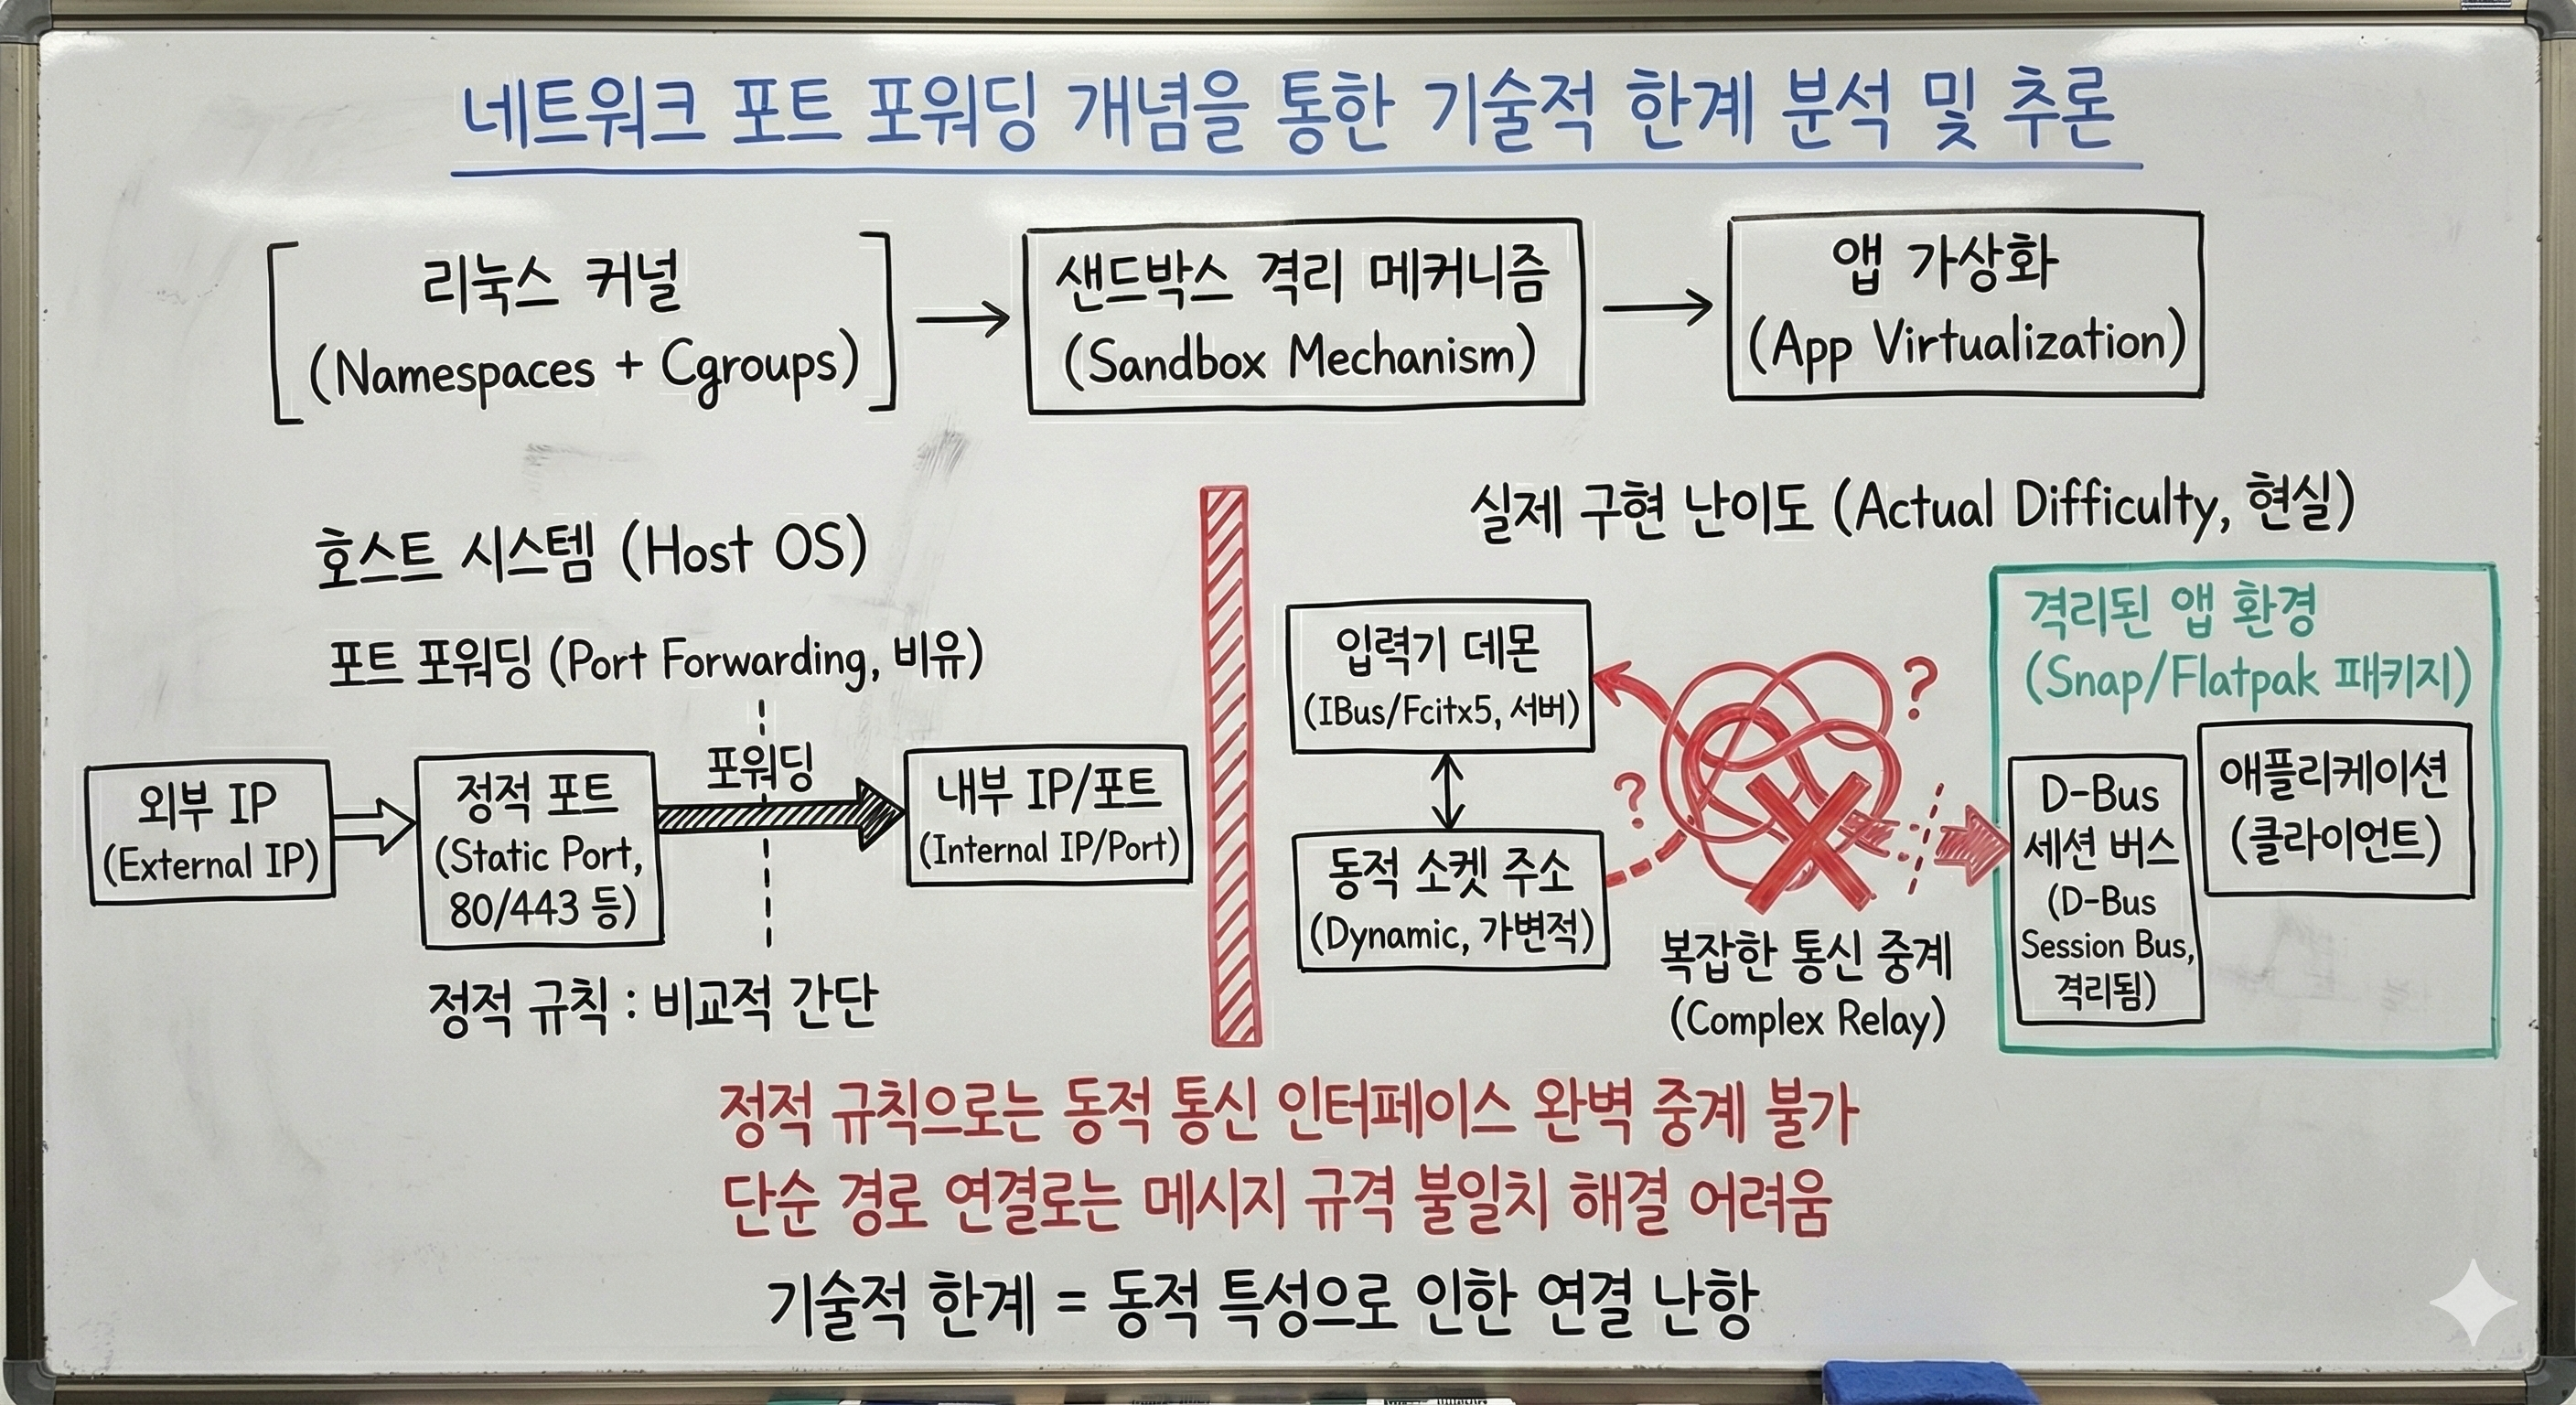 네트워크 포트 포워딩 개념을 통한 기술적 한계 분석 및 추론
리눅스 커널
(Namespaces + Cgroups)
샌드박스 격리 메커니즘
(Sandbox Mechanism)
앱 가상화
(App Virtualization)
호스트 시스템 (Host OS)
포트 포워딩 (Port Forwarding, 비유)
외부 IP
(External IP)
정적 포트
(Static Port,
80/443 등)
포워딩
내부 IP/포트
(Internal IP/Port)
정적 규칙 : 비교적 간단
실제 구현 난이도 (Actual Difficulty, 현실)
입력기 데몬
(IBus/Fcitx5, 서버)
동적 소켓 주소
(Dynamic, 가변적)
?
?
복잡한 통신 중계
(Complex Relay)
격리된 앱 환경
(Snap/Flatpak 패키지)
D-Bus
세션 버스
(D-Bus
Session Bus,
격리됨)
애플리케이션
(클라이언트)
정적 규칙으로는 동적 통신 인터페이스 완벽 중계 불가
단순 경로 연결로는 메시지 규격 불일치 해결 어려움
기술적 한계 = 동적 특성으로 인한 연결 난항